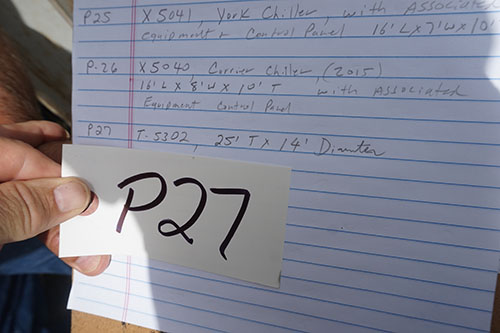 P25 X5041, York Chiller, with Associated
Equipment + Control Panel 16' L x 7' W x 10'
P-26 X5040, Carrier Chiller, (2015)
16' L X 8' W X 10' T with Associated
Equipment Control Panel
P27 T-5302, 25' T x 14' Diameter
P27